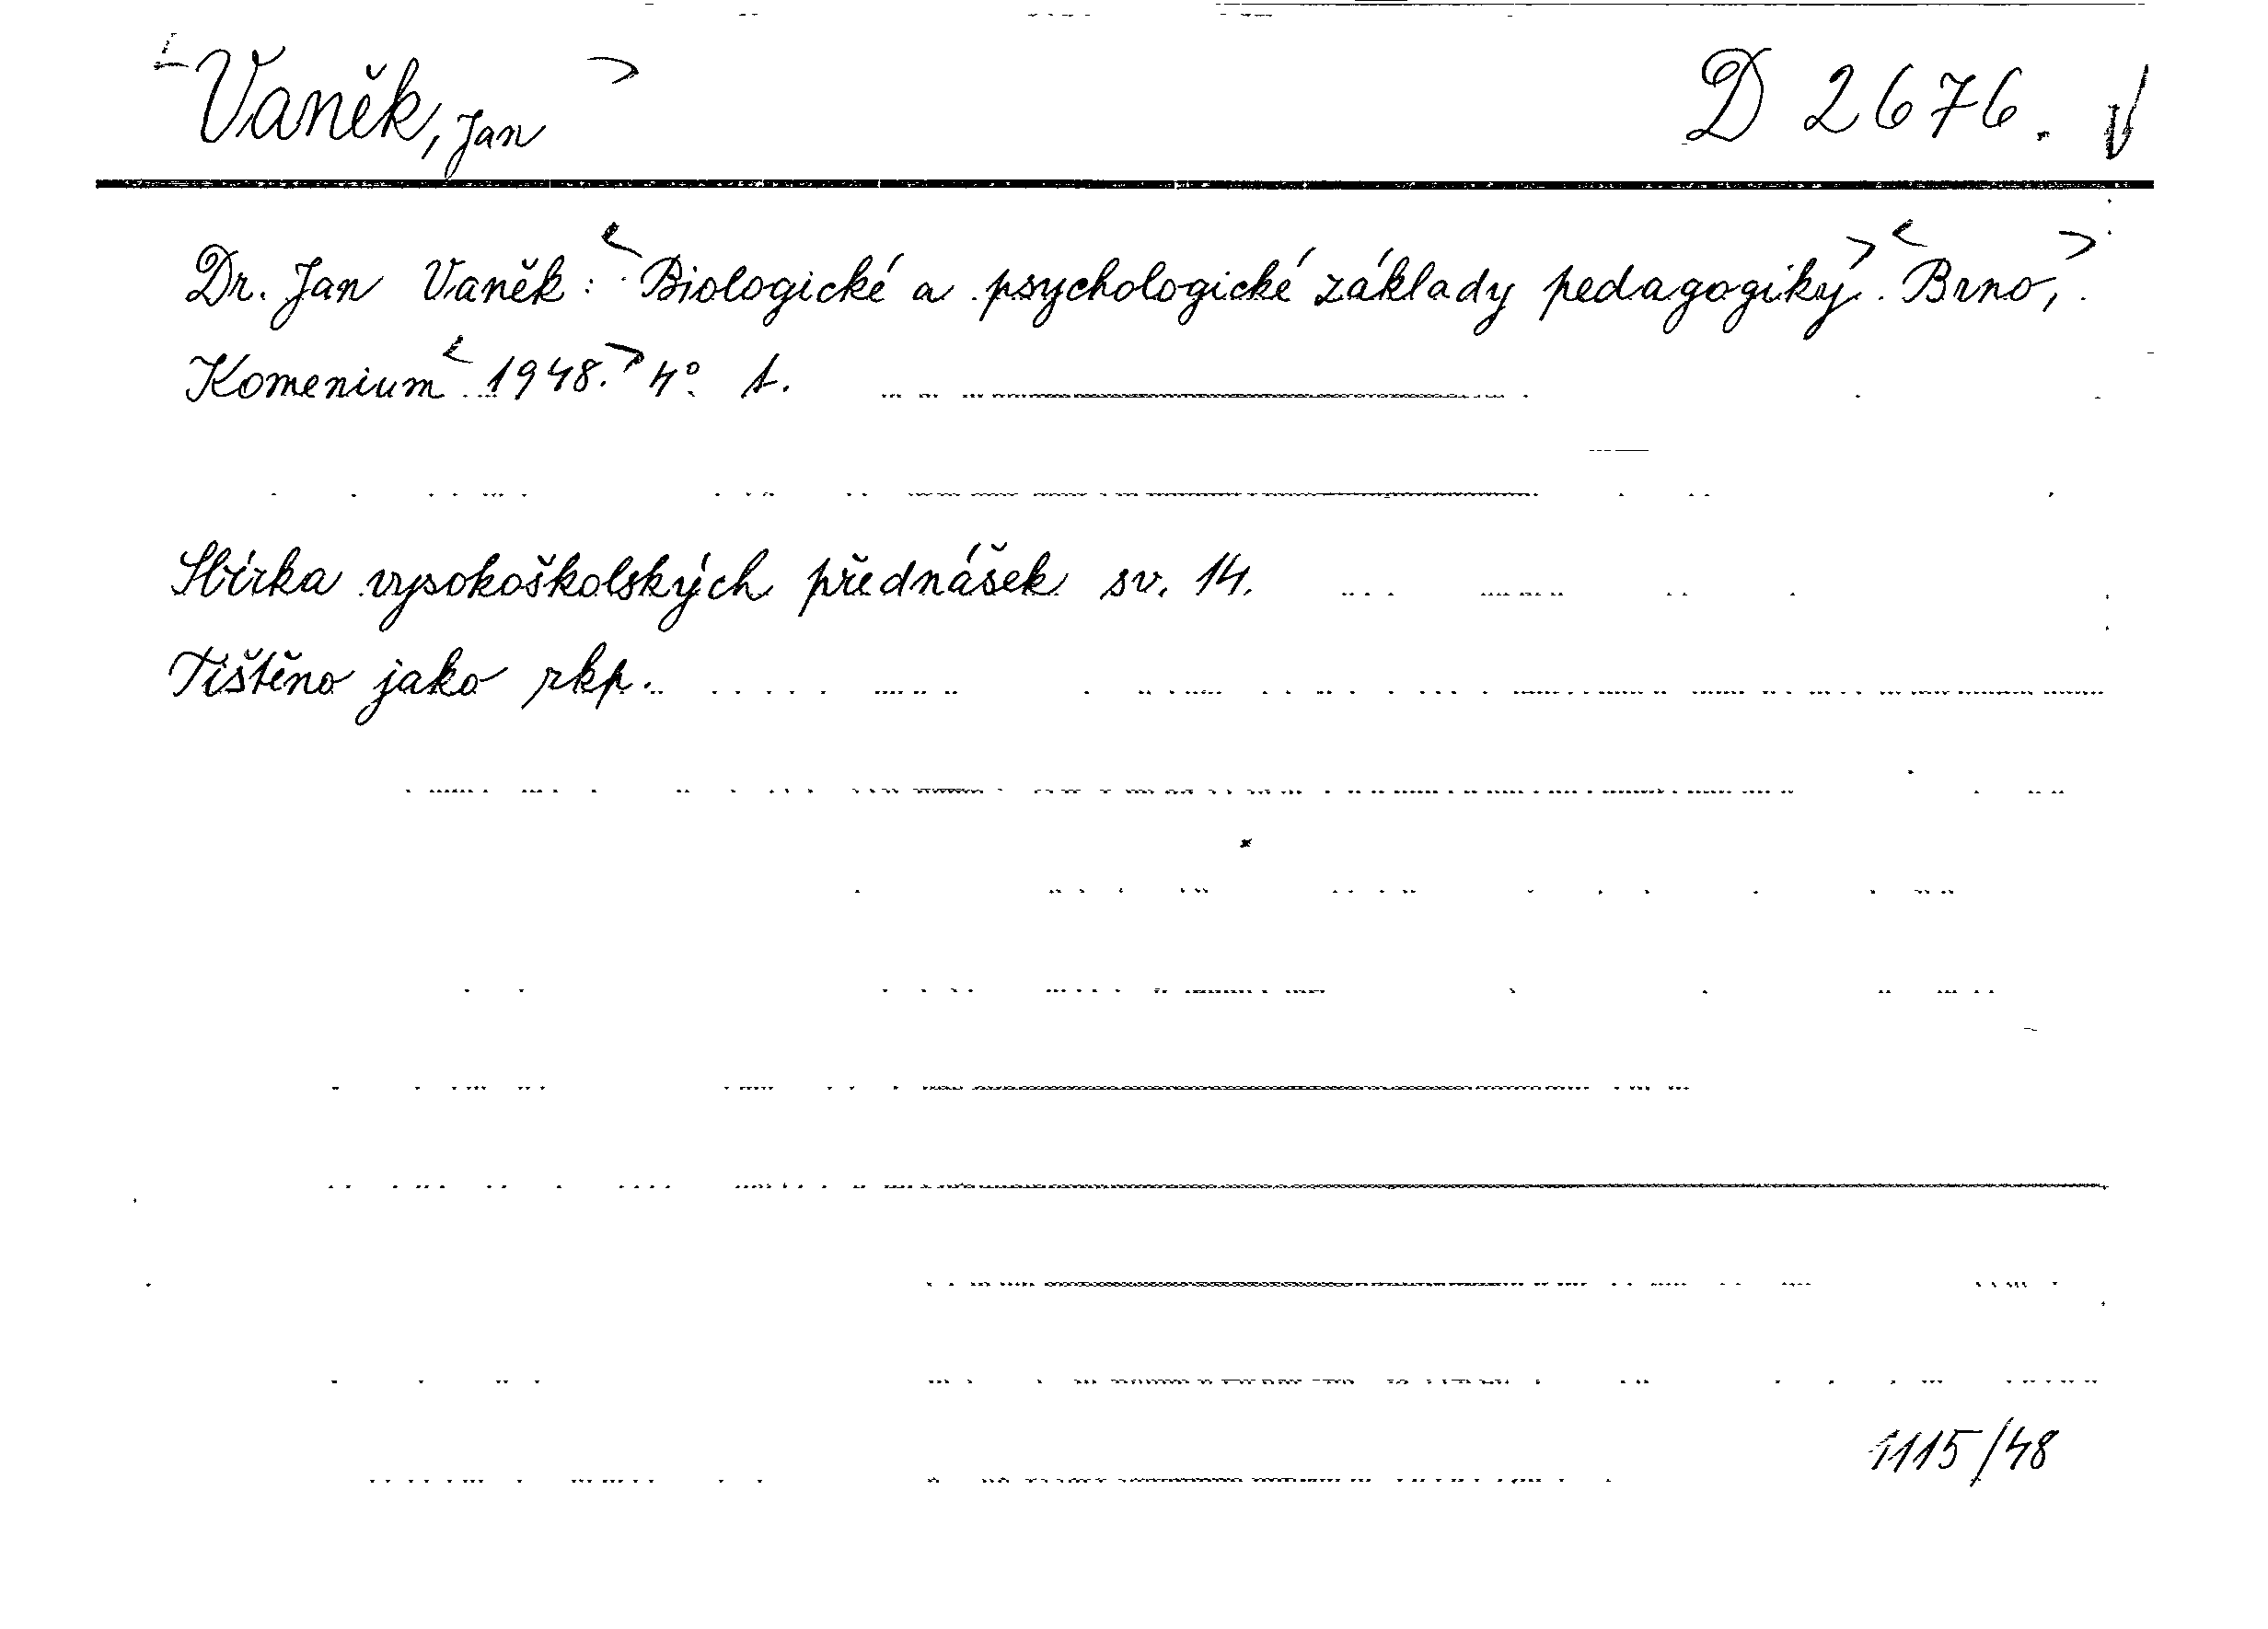 Vaněk, Jan D 2676.
Dr. Jan Vaněk: Biologické a psychologické základy pedagogiky. Brno,
Komenium 1948. 4°.
Sbírka vysokoškolských přednášek sv. 14.
Tištěno jako rkp.
1115/48